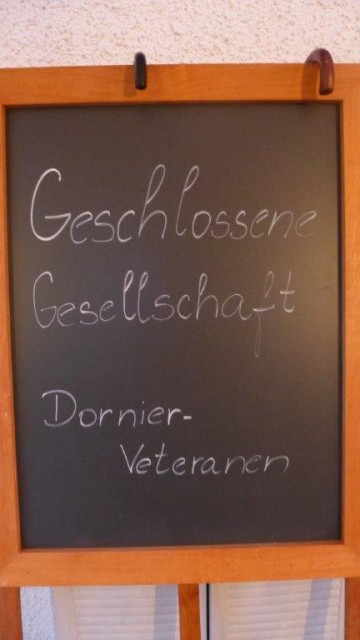 Geschlossene
Gesellschaft
Dornier-
Veteranen